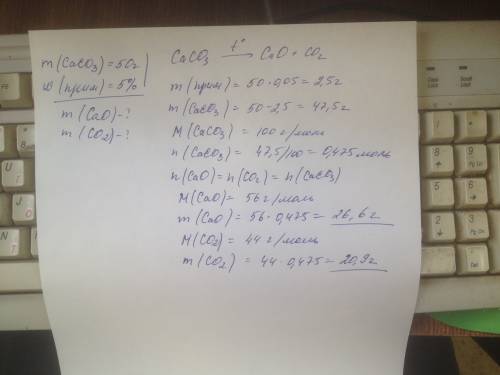 m(CaCO3)=50г
w(прим)=5%
m(CaO)-?
m(CO2)-?
CaCO3 t° → CaO + CO2
m(прим) = 50·0,05 = 2,5г
m(CaCO3) = 50-2,5 = 47,5г
M(CaCO3) = 100 г/моль
n(CaCO3) = 47,5/100 = 0,475 моль
n(CaO) = n(CO2) = n(CaCO3)
M(CaO) = 56 г/моль
m(CaO) = 56·0,475 = 26,6г
M(CO2) = 44 г/моль
m(CO2) = 44·0,475 = 20,9г